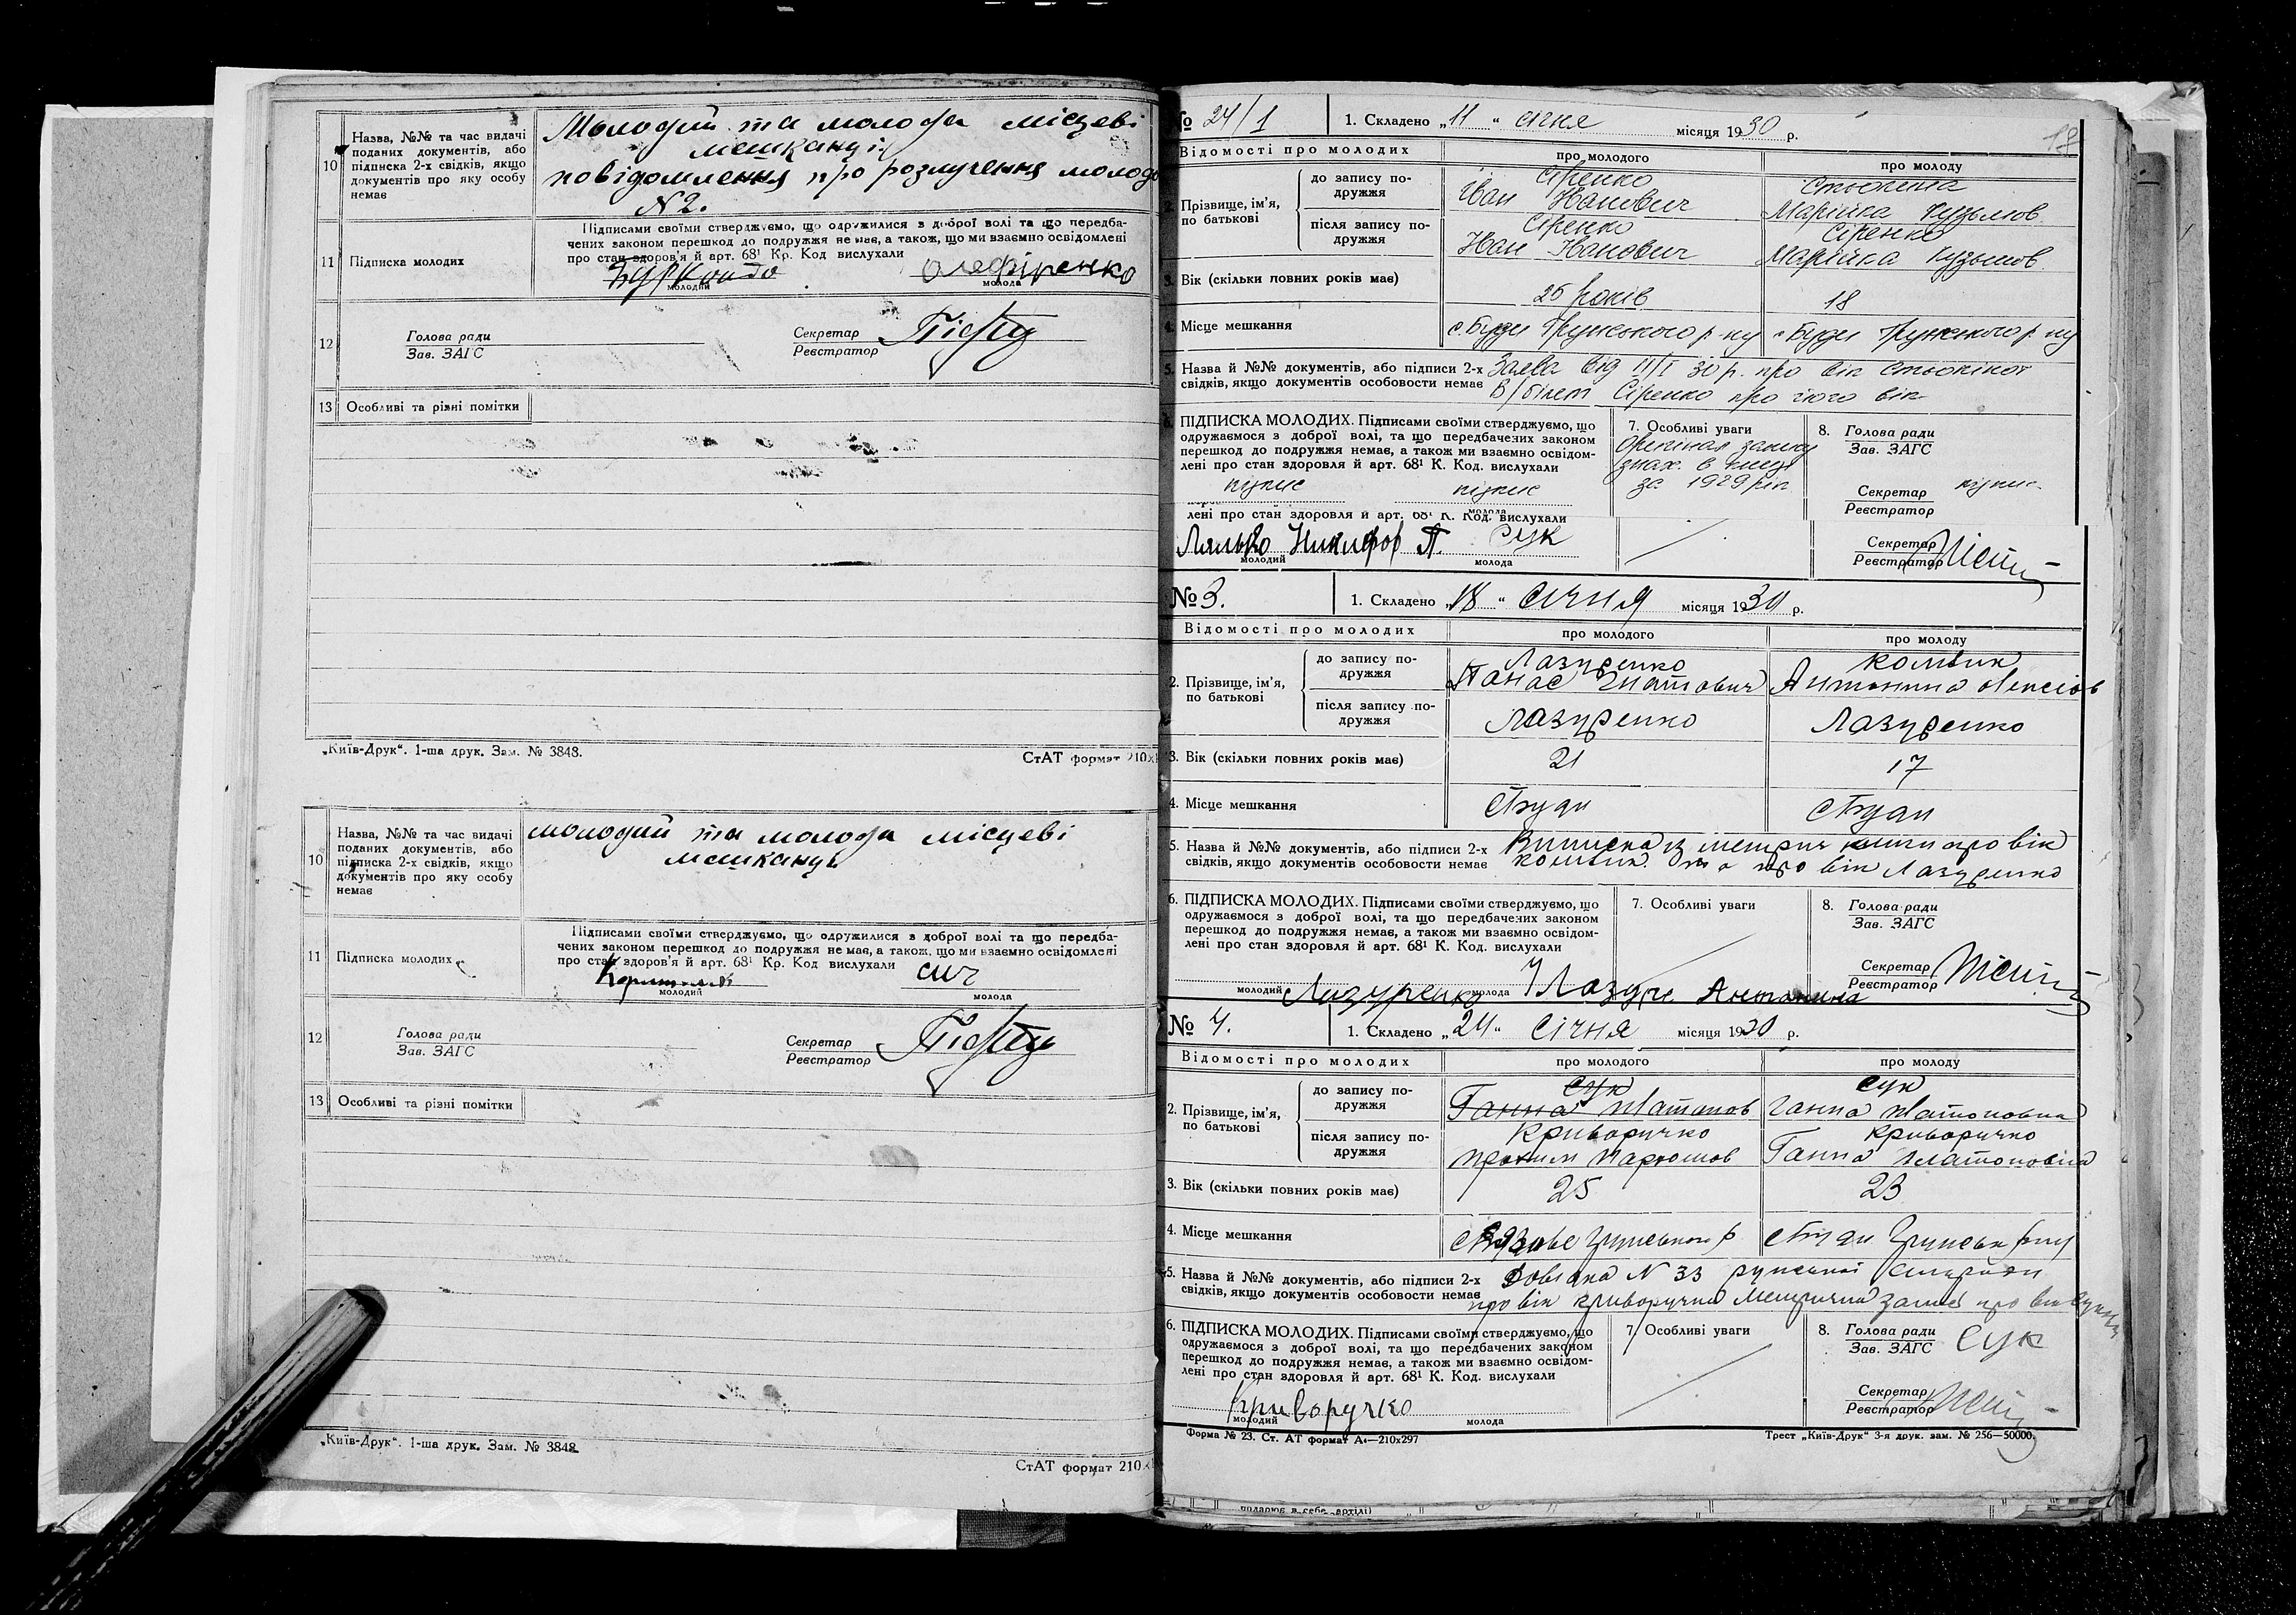 10
Назва, №№ та час видачі
поданих документів, або
підписка 2-х свідків, якщо
документів про яку особу
немає
Молодий та молода місцеві
мешканці
повідомлення про розлучення молодо
N2.
11
Підписка молодих
Підписами своїми стверджуємо, що одружилися з доброї волі та що передба-
чених законом перешкод до подружжя не має, а також, що ми взаємно освідомлені
про стан здоров'я й арт. 68¹ Кр. Код вислухали
Олефіренко
молодий
молода
12
Голова ради
Зав. ЗАГС
Секретар
Реєстратор
13
Особливі та різні помітки
„Київ-Друк“. 1-ша друк. Зам. № 3848.
СтАТ формат 210х
10
Назва, №№ та час видачі
поданих документів, або
підписка 2-х свідків, якщо
документів про яку особу
немає
молодий та молода місцеві
мешканці
11
Підписка молодих
Підписами своїми стверджуємо, що одружилися з доброї волі та що передба-
чених законом перешкод до подружжя не має, а також, що ми взаємно освідомлені
про стан здоров'я й арт. 68¹ Кр. Код вислухали
сич
молодий
молода
12
Голова ради
Зав. ЗАГС
Секретар
Реєстратор
13
Особливі та різні помітки
„Київ-Друк“. 1-ша друк. Зам. № 3848
СтАТ формат 210
18
№ 24/1
1. Складено „11“ січня місяця 1930 р.
Відомості про молодих
про молодого
про молоду
2. Прізвище, ім'я,
по батькові
до запису по-
дружжя
Сіренко
Іван Іванович
Марійка Кузьмов
після запису по-
дружжя
Сіренко
Іван Іванович
Сіренко
Марійка Кузьмов
3. Вік (скільки повних років має)
26 років
18
4. Місце мешкання
с. Буди Грунського р-ну
с. Буди Грунського р-ну
5. Назва й №№ документів, або підписи 2-х
свідків, якщо документів особовости немає
Заява від 11/I 30 р. про вік
В/білет Сіренко про його вік
6. ПІДПИСКА МОЛОДИХ. Підписами своїми стверджуємо, що
одружаємося з доброї волі, та що передбачених законом
перешкод до подружжя немає, а також ми взаємно освідом-
лені про стан здоровля й арт. 68¹ К. Код. вислухали
підпис
підпис
7. Особливі уваги
Оригінал запису
знах. в книзі
за 1929 рік
8. Голова ради
Зав. ЗАГС
Секретар
Реєстратор
підпис
лені про стан здоровля й арт. 68¹ К. Код. вислухали
Лялько Никифор П. Сук
молодий
молода
Секретар
Реєстратор
№ 3.
1. Складено „18“ січня місяця 1930 р.
Відомості про молодих
про молодого
про молоду
2. Прізвище, ім'я,
по батькові
до запису по-
дружжя
Лазуренко
Панас Гнатович
Антонина Олексіов
після запису по-
дружжя
Лазуренко
Лазуренко
3. Вік (скільки повних років має)
21
17
4. Місце мешкання
с Буди
с Буди
5. Назва й №№ документів, або підписи 2-х
свідків, якщо документів особовости немає
Виписка із метрич книги про вік
та про вік Лазуренко
6. ПІДПИСКА МОЛОДИХ. Підписами своїми стверджуємо, що
одружаємося з доброї волі, та що передбачених законом
перешкод до подружжя немає, а також ми взаємно освідом-
лені про стан здоровля й арт. 68¹ К. Код. вислухали
7. Особливі уваги
8. Голова ради
Зав. ЗАГС
Секретар
Реєстратор
молодий
Лазуренко
молода
Лазуре Антонина
№ 4.
1. Складено „24“ січня місяця 1930 р.
Відомості про молодих
про молодого
про молоду
2. Прізвище, ім'я,
по батькові
до запису по-
дружжя
Сук
Ганна Платонов
Сук
Ганна Платоновна
після запису по-
дружжя
Криворучко
Криворучко
Ганна Платоновна
3. Вік (скільки повних років має)
25
23
4. Місце мешкання
Грунського р
с Буди Грунськ р-ну
5. Назва й №№ документів, або підписи 2-х
свідків, якщо документів особовости немає
Довідка N 33 сільради
про вік Криворучка Метрична запис про вік
6. ПІДПИСКА МОЛОДИХ. Підписами своїми стверджуємо, що
одружаємося з доброї волі, та що передбачених законом
перешкод до подружжя немає, а також ми взаємно освідом-
лені про стан здоровля й арт. 68¹ К. Код. вислухали
Криворучко
молодий
молода
7. Особливі уваги
8. Голова ради
Зав. ЗАГС
Сук
Секретар
Реєстратор
Форма № 23. Ст. АТ формат А₄—210х297
Трест „Київ-Друк“ 3-я друк. зам. № 256—50000.